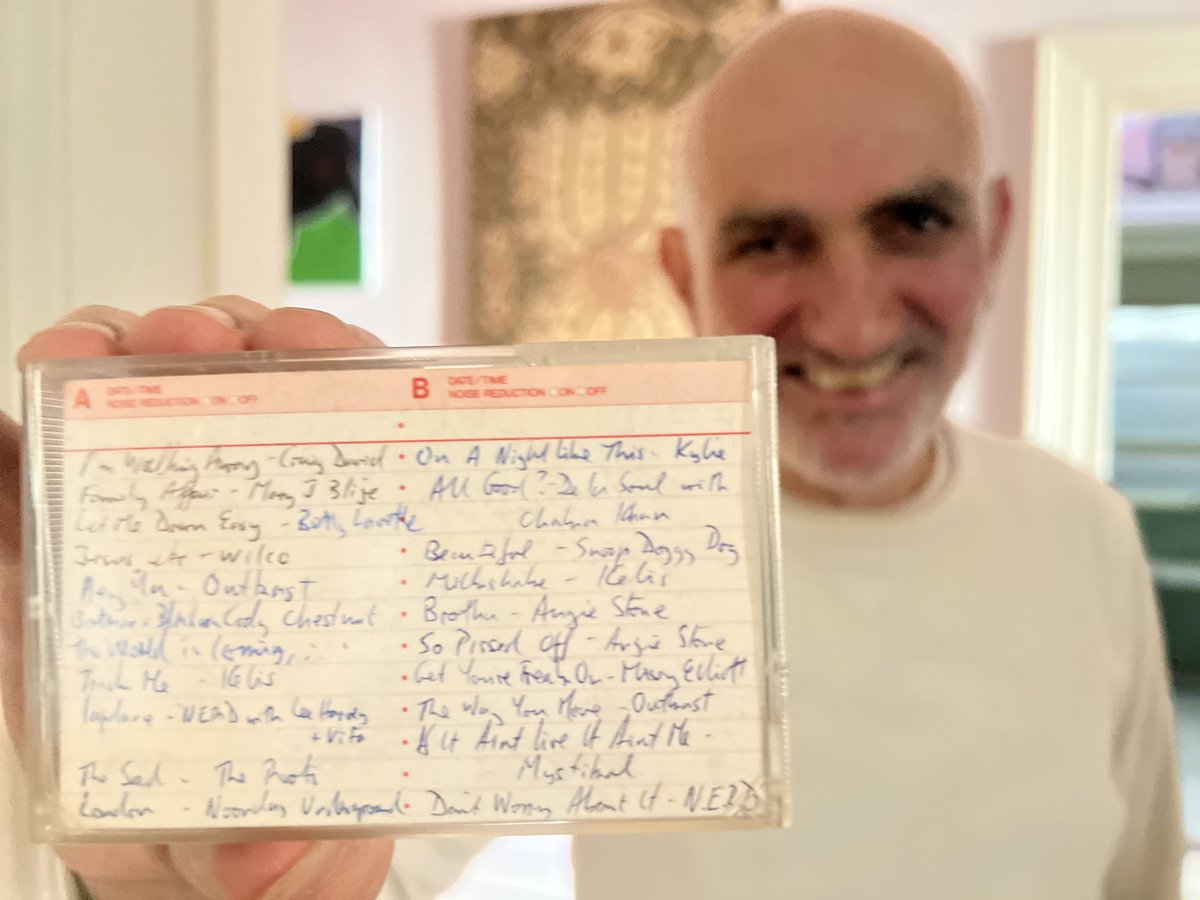 A DATE/TIME
NOISE REDUCTION ON OFF
I'm Walking Away - Craig David
Family Affair - Mary J Blije
Let Me Down Easy - Betty Lavette
Jesus, etc - Wilco
Hey Ya - Outkast
Cody Chestnut
The World is Coming, ...
- Kelis
Lapdance - NERD with Lee Harvey
+ Vita
The Seed - The Roots
London - Noonday Underground
B DATE/TIME
NOISE REDUCTION ON OFF
On A Night Like This - Kylie
All Good? - De La Soul with
Chaka Khan
Beautiful - Snoop Doggy Dog
Milkshake - Kelis
Brotha - Angie Stone
So Pissed Off - Angie Stone
Get Youre Freak On - Missy Elliott
The Way You Move - Outkast
If It Aint Live It Aint Me -
Mystikal
Don't Worry About It - N.E.R.D